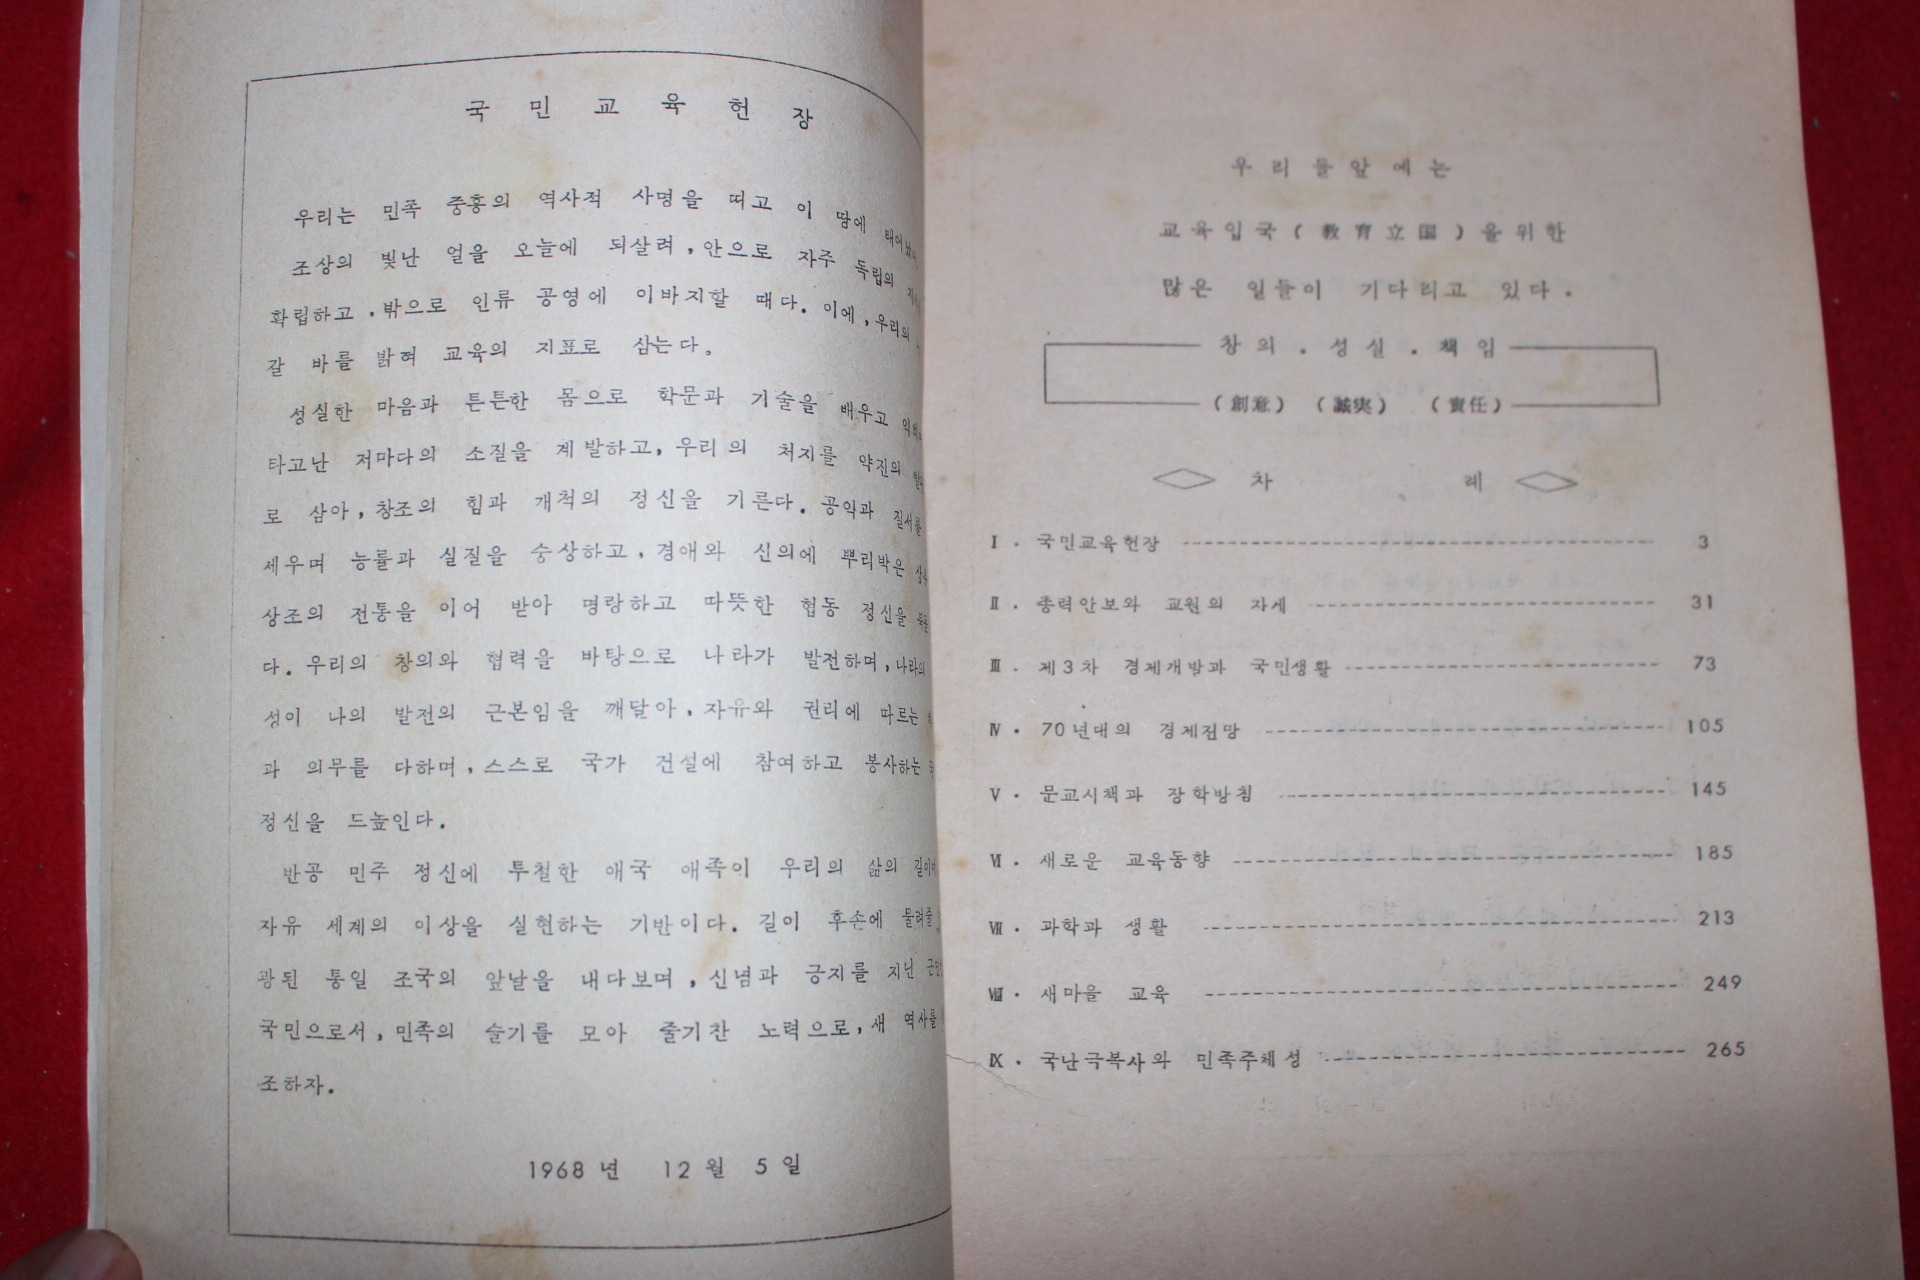 국 민 교 육 헌 장
우리는 민족 중흥의 역사적 사명을 띠고 이 땅에 태어났
조상의 빛난 얼을 오늘에 되살려,안으로 자주 독립의
확립하고,밖으로 인류 공영에 이바지할 때다. 이에,우리의
갈 바를 밝혀 교육의 지표로 삼는다。
성실한 마음과 튼튼한 몸으로 학문과 기술을 배우고
타고난 저마다의 소질을 계발하고,우리의 처지를 약진의
로 삼아,창조의 힘과 개척의 정신을 기른다. 공익과 질서를
세우며 능률과 실질을 숭상하고,경애와 신의에 뿌리박은
상조의 전통을 이어 받아 명랑하고 따뜻한 협동 정신을
다. 우리의 창의와 협력을 바탕으로 나라가 발전하며,나라의
성이 나의 발전의 근본임을 깨달아,자유와 권리에 따르는
과 의무를 다하며,스스로 국가 건설에 참여하고 봉사하는
정신을 드높인다.
반공 민주 정신에 투철한 애국 애족이 우리의 삶의 길이며
자유 세계의 이상을 실현하는 기반이다. 길이 후손에 물려줄
광된 통일 조국의 앞날을 내다보며,신념과 긍지를 지닌
국민으로서,민족의 슬기를 모아 줄기찬 노력으로,새 역사를
조하자.
1968 년 12 월 5 일
우리들앞에는
교육입국(教育立国)을위한
많은 일들이 기다리고 있다.
창의.성실.책임
(創意) (誠実) (責任)
차 례
Ⅰ. 국민교육헌장 3
Ⅱ. 총력안보와 교원의 자세 31
Ⅲ. 제3차 경제개발과 국민생활 73
Ⅳ. 70년대의 경제전망 105
Ⅴ. 문교시책과 장학방침 145
Ⅵ. 새로운 교육동향 185
Ⅶ. 과학과 생활 213
Ⅷ. 새마을 교육 249
Ⅸ. 국난극복사와 민족주체성 265